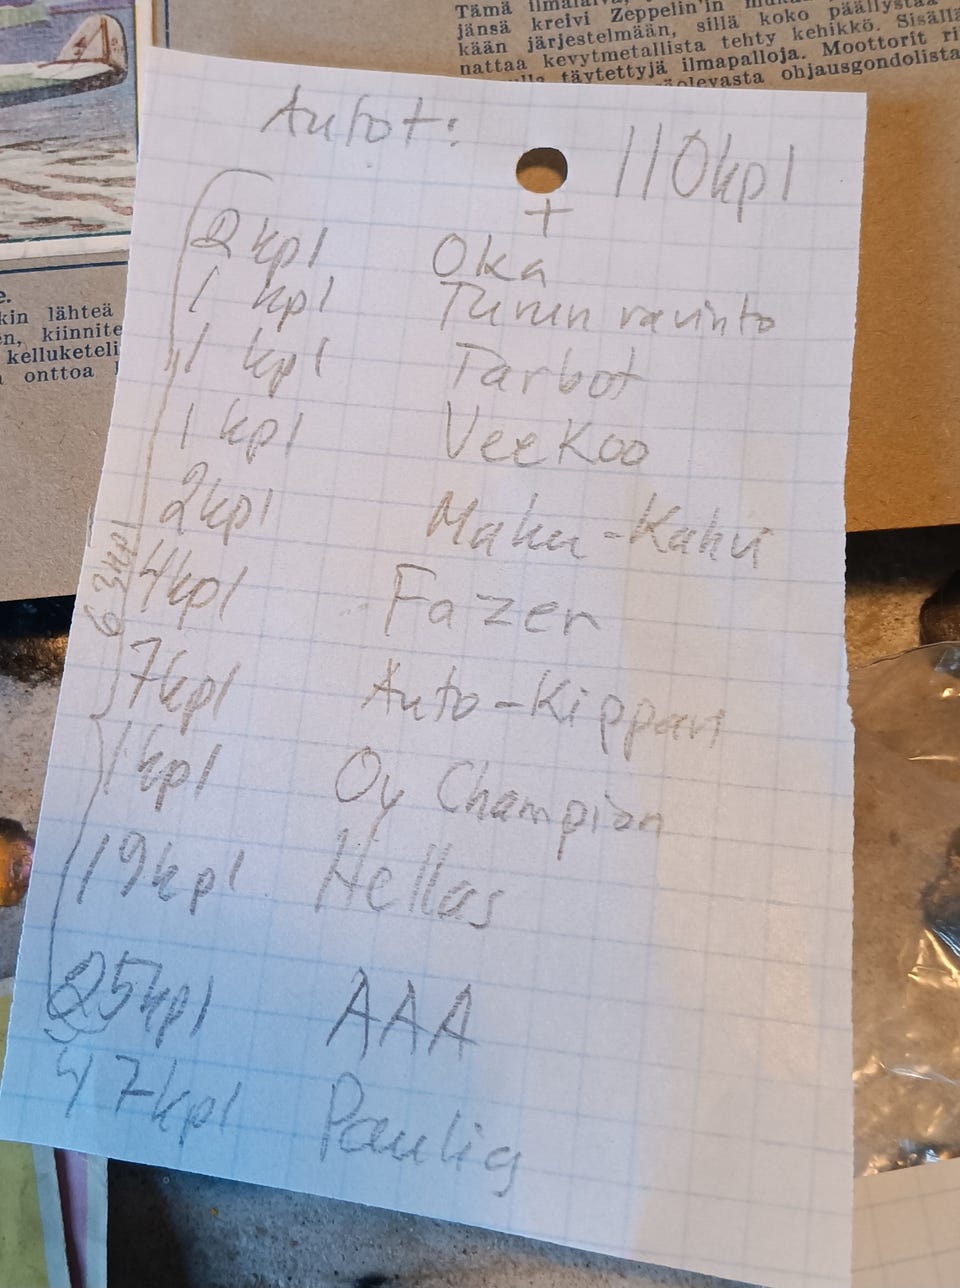 Tämä ilmalaiva,
jänsä kreivi Zeppelin'in mukaan
kään järjestelmään, sillä koko päällystää
nattaa kevytmetallista tehty kehikkö. Sisällä
täytettyjä ilmapalloja. Moottorit
ohjausgondolista
kin lähteä
kiinnite
kelluketeli
onttoa
Autot: 110kpl
+
2kpl Oka
1 kpl Turun ravinto
1 kpl Tarbot
1 kpl VeeKoo
2kpl Maku-Kahvi
4kpl Fazer
7kpl Auto-Kippari
1kpl Oy Champion
19kpl Hellas
25kpl AAA
47kpl Paulig
63kpl